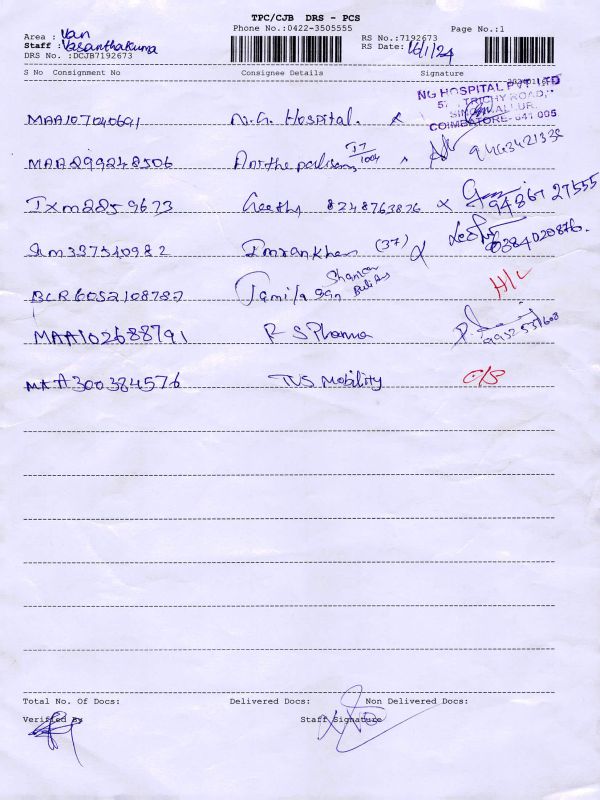 TPC/CJB DRS - PCS
Area : Van Phone No.:0422-3505555 Page No.:1
Staff : Vasanthakuma RS No.:7192673
DRS No. :DCJB7192673 RS Date: 16/1/24
S No Consignment No Consignee Details Signature
NG HOSPITAL PVT LTD
TRICHY ROAD,
SINGANALLUR,
COIMBATORE- 641 005
MAA107040691 N.G. Hospital. x
MAA299248506 17/1004 9443421338
IXM2259673 Geetha 8248763876 x 94867 27555
337540982 Imrankhan (37)
6052108787 Jamila H/L
MAA102688791 R S Pharma
MAA300384576 TVS Mobility C/S
Total No. Of Docs: Delivered Docs: Non Delivered Docs:
Verified By Staff Signature